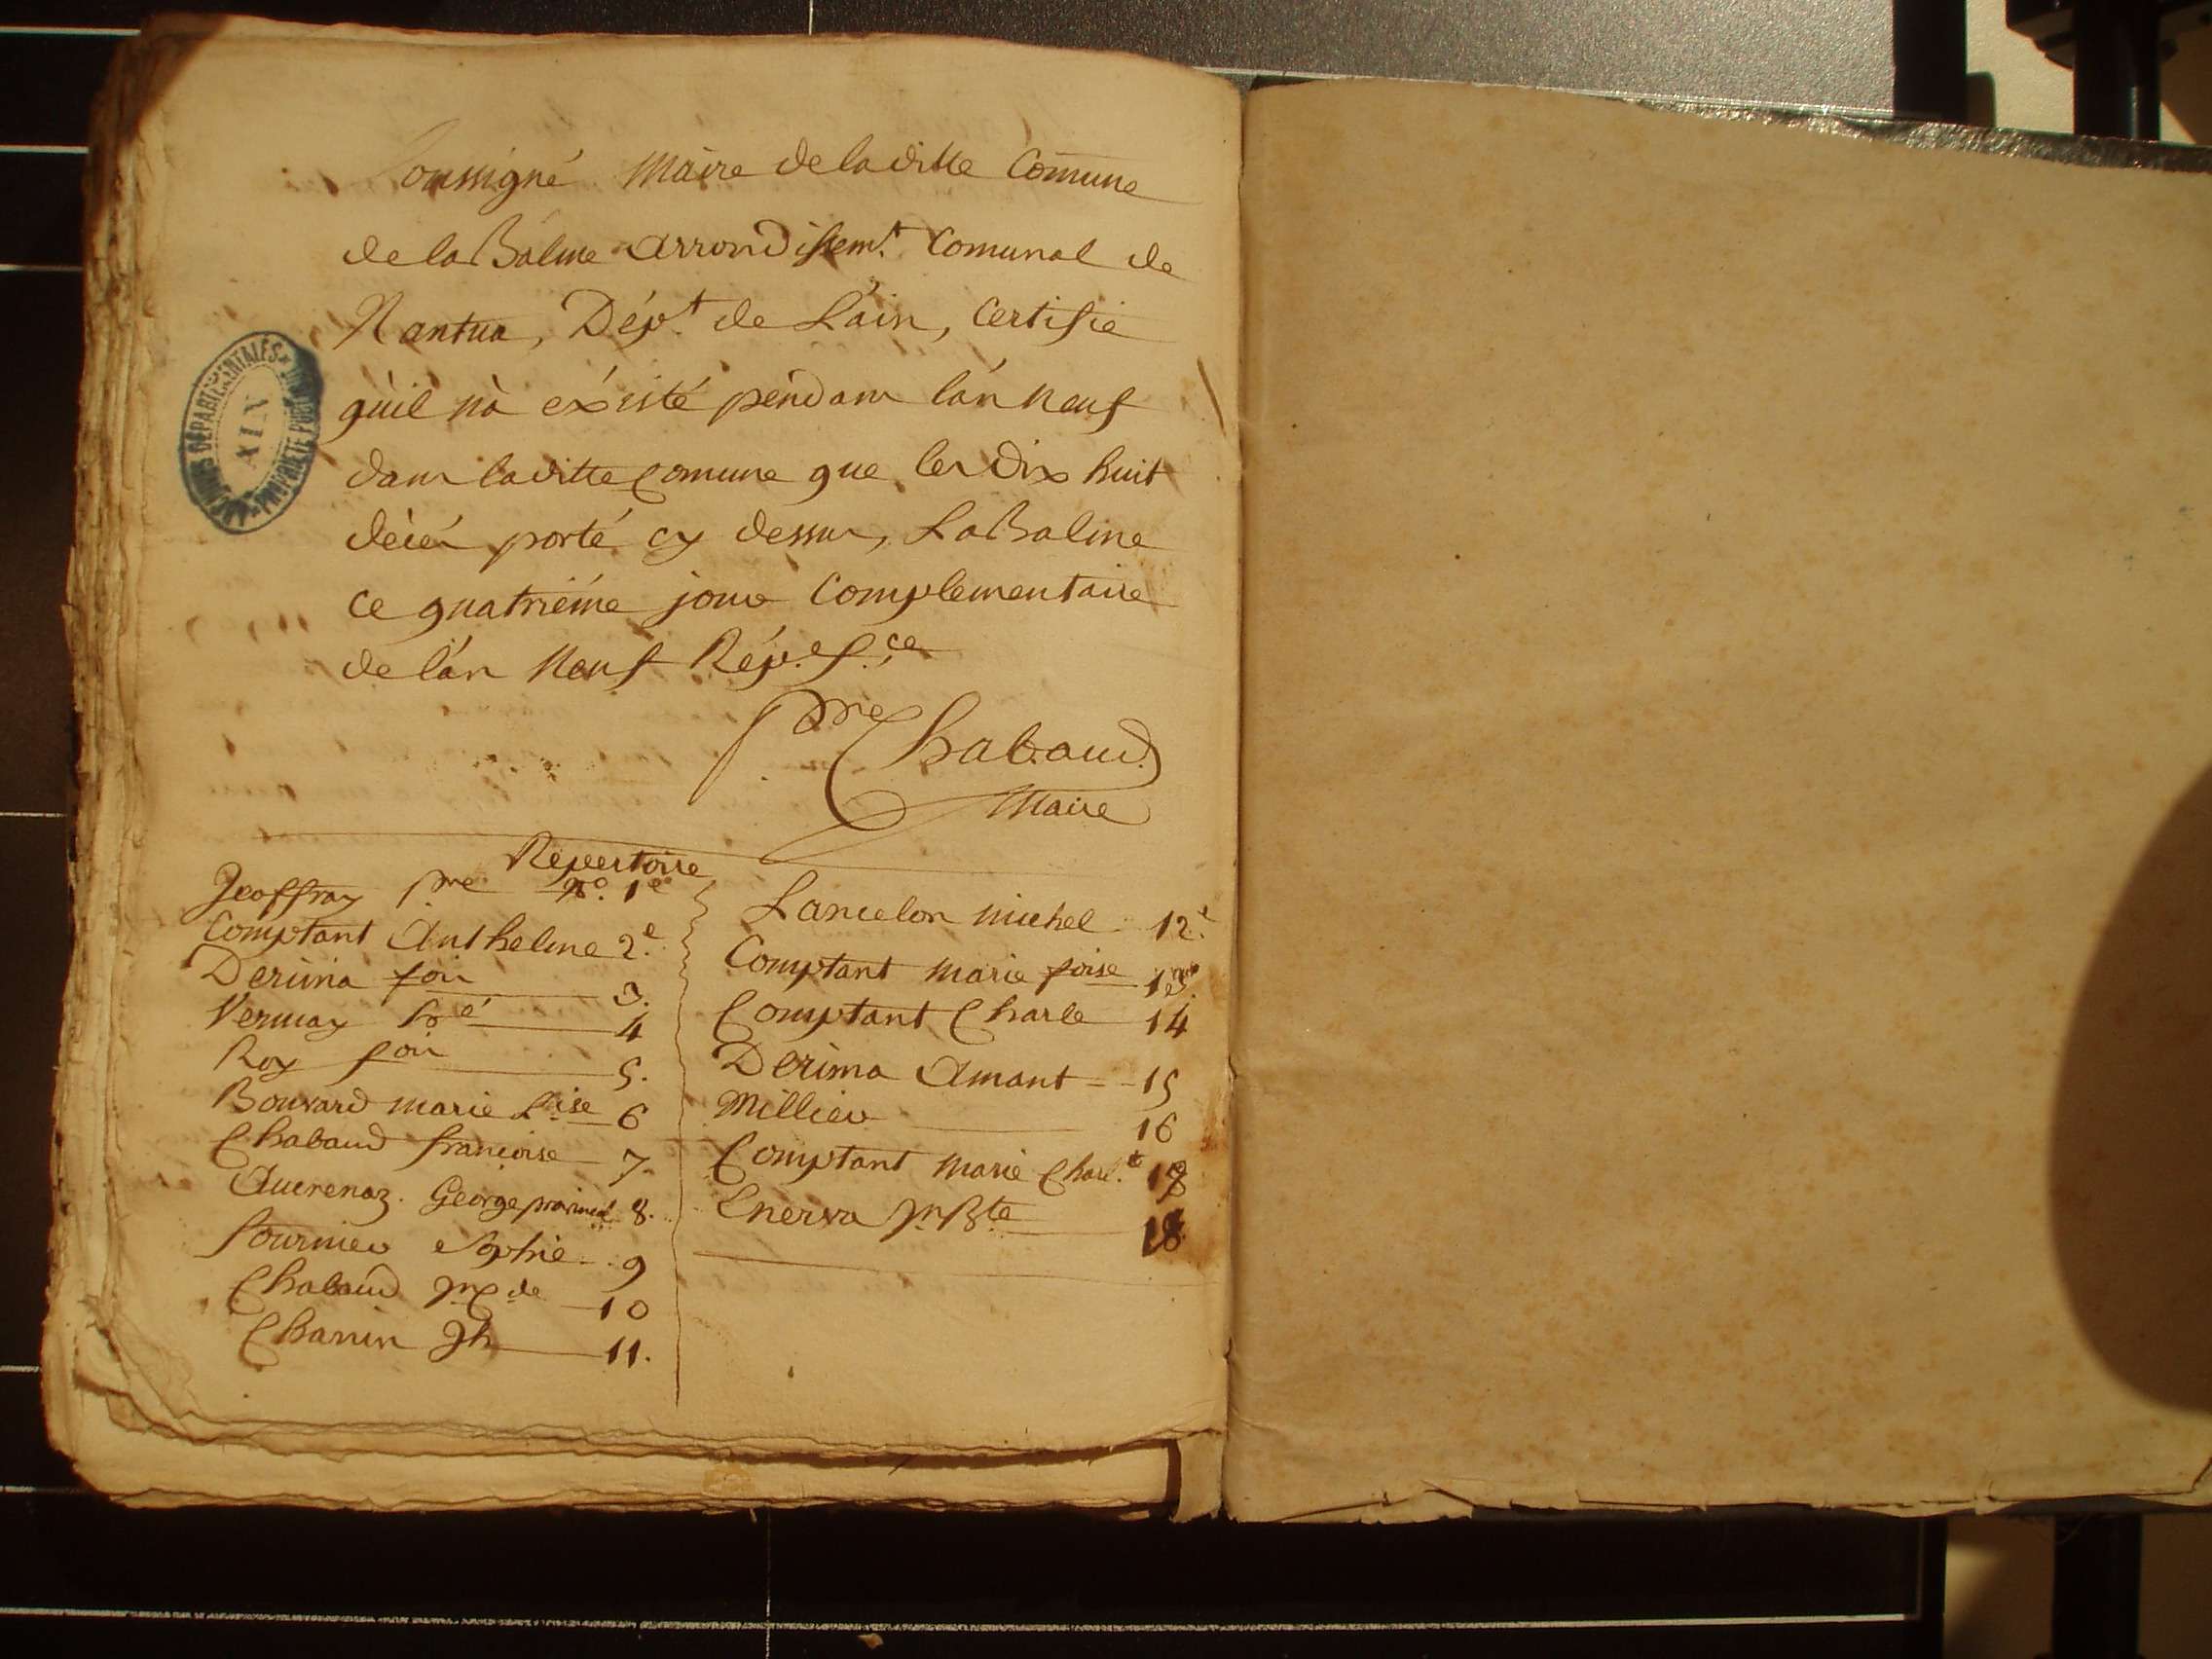 Soussigné Maire de laditte Comune
de la Balme arrondissemt. Comunal de
Nantua, Dépt. de L'ain, Certifie
qu'il n'a éxisté pendant l'an neuf
dans laditte Comune que les dix huit
décés porté cy dessus, La Balme
ce quatriéme jour Complementaire
de l'an neuf Rép. f.ce
pre Chabaud
Maire
ARCHIVES DÉPARTEMENTALES
AIN
PROPRIÉTÉ PUBLIQUE
Repertoire
Jeoffray pre. No. 1e
Comptant Anthelme 2e.
Derima fois 3.
Vermay 4
Roy fois 5.
Bouvard marie L.ise 6
Chabaud francoise 7.
Aucrenaz. George 8.
fournier Sophie 9
Chabaud 10
Chanin Jh 11.
Lancelon michel 12e.
Comptant marie foise 13
Comptant Charle 14
Derima Amant 15
Millier 16
Comptant marie Charl.te 17
Enerva jn Bte 18